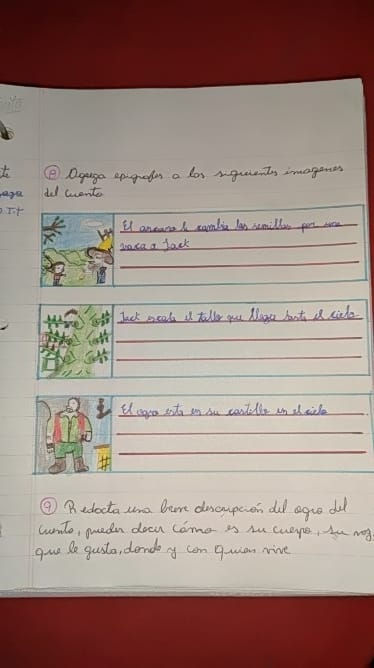 ⑧ Agrega epígrafes a las siguientes imagenes
del cuento
El anciano le cambia las semillas por una
vaca a Jack
Jack escala el tallo que llega hasta el cielo
El ogro esta en su castillo en el cielo
⑨ Redacta una breve descripción del ogro del
cuento, puedes decir cómo es su cuerpo, su voz,
que le gusta, donde y con quien vive